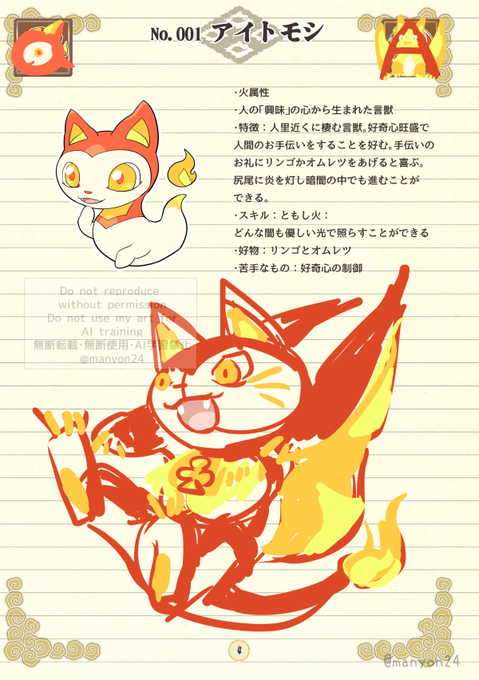 No.001 アイトモシ
A
・火属性
・人の「興味」の心から生まれた言獣
・特徴：人里近くに棲む言獣。好奇心旺盛で
人間のお手伝いをすることを好む。手伝いの
お礼にリンゴかオムレツをあげると喜ぶ。
尻尾に炎を灯し暗闇の中でも進むことが
できる。
・スキル：ともし火：
どんな闇も優しい光で照らすことができる
・好物：リンゴとオムレツ
・苦手なもの：好奇心の制御
Do not reproduce
without permission
Do not use my art for
AI training
無断転載・無断使用・AI学習禁止
@manyon24
4
@manyon24